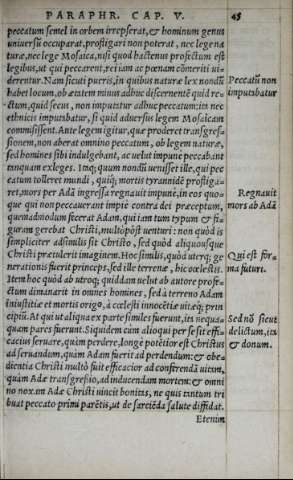 PARAPHR. CAP. V. 45
peccatum semel in orbem irrepserat, & hominum genus
universũ occuparat, profligari non poterat, nec lege na
turæ, nec lege Mosaica, nisi quod hactenus profectum est
legibus, ut qui peccarent, rei iam ac pœnam cõmeriti vi-
derentur. Nam sicuti pueris, in quibus naturæ lex nondũ
habet locum, ob ætatem minus adhuc discernentẽ quid re-
ctum, quid secus, non imputatur adhuc peccatum: ita nec
ethnicis imputabatur, si quid adversus legem Mosaicam
commisissent. Ante legem igitur, quæ proderet transgres-
sionem, non aberat omnino peccatum, ob legem naturæ,
sed homines sibi indulgebant, ac velut impune peccabant
tanquam exleges. Itaq; quum nondũ venisset ille, qui pec
catum tolleret mundi, quiq; mortis tyrannidẽ profliga-
ret, mors per Adã ingressa regnavit impunè, in eos quo-
que qui non peccaverant impiè contra dei præceptum,
quemadmodum fecerat Adam, qui iam tum typum & fi-
guram gerebat Christi, multò pòst venturi: non quòd is
simpliciter adsimilis sit Christo, sed quòd aliquousque
Christi prætulerit imaginem. Hoc similis, quòd uterq; ge
nerationis fuerit princeps, sed ille terrenæ, hic cœlestis.
Item hoc quòd ab utroq; quiddam velut ab autore profe-
ctum dimanarit in omnes homines, sed à terreno Adam
iniustitiæ et mortis origo, à cœlesti innocẽtiæ vitæq; prin
cipiũ. At qui ut aliqua ex parte similes fuerunt, ita nequa-
quam pares fuerunt. Siquidem cùm alioqui per se sit effi-
cacius servare, quàm perdere, longè potẽtior est Christus
ad servandum, quàm Adam fuerit ad perdendum: & obe-
dientia Christi multò fuit efficacior ad conferendã vitam,
quàm Adæ transgressio, ad inducendam mortem: & omni
no noxam Adæ Christi vincit bonitas, ne quis tantum tri
buat peccato primi parẽtis, ut de sarciẽda salute diffidat.
Etenim
Peccatũ non
imputabatur
Regnavit
mors ab Adã
Qui est for-
ma futuri.
Sed nõ sicut
delictum, ita
& donum.